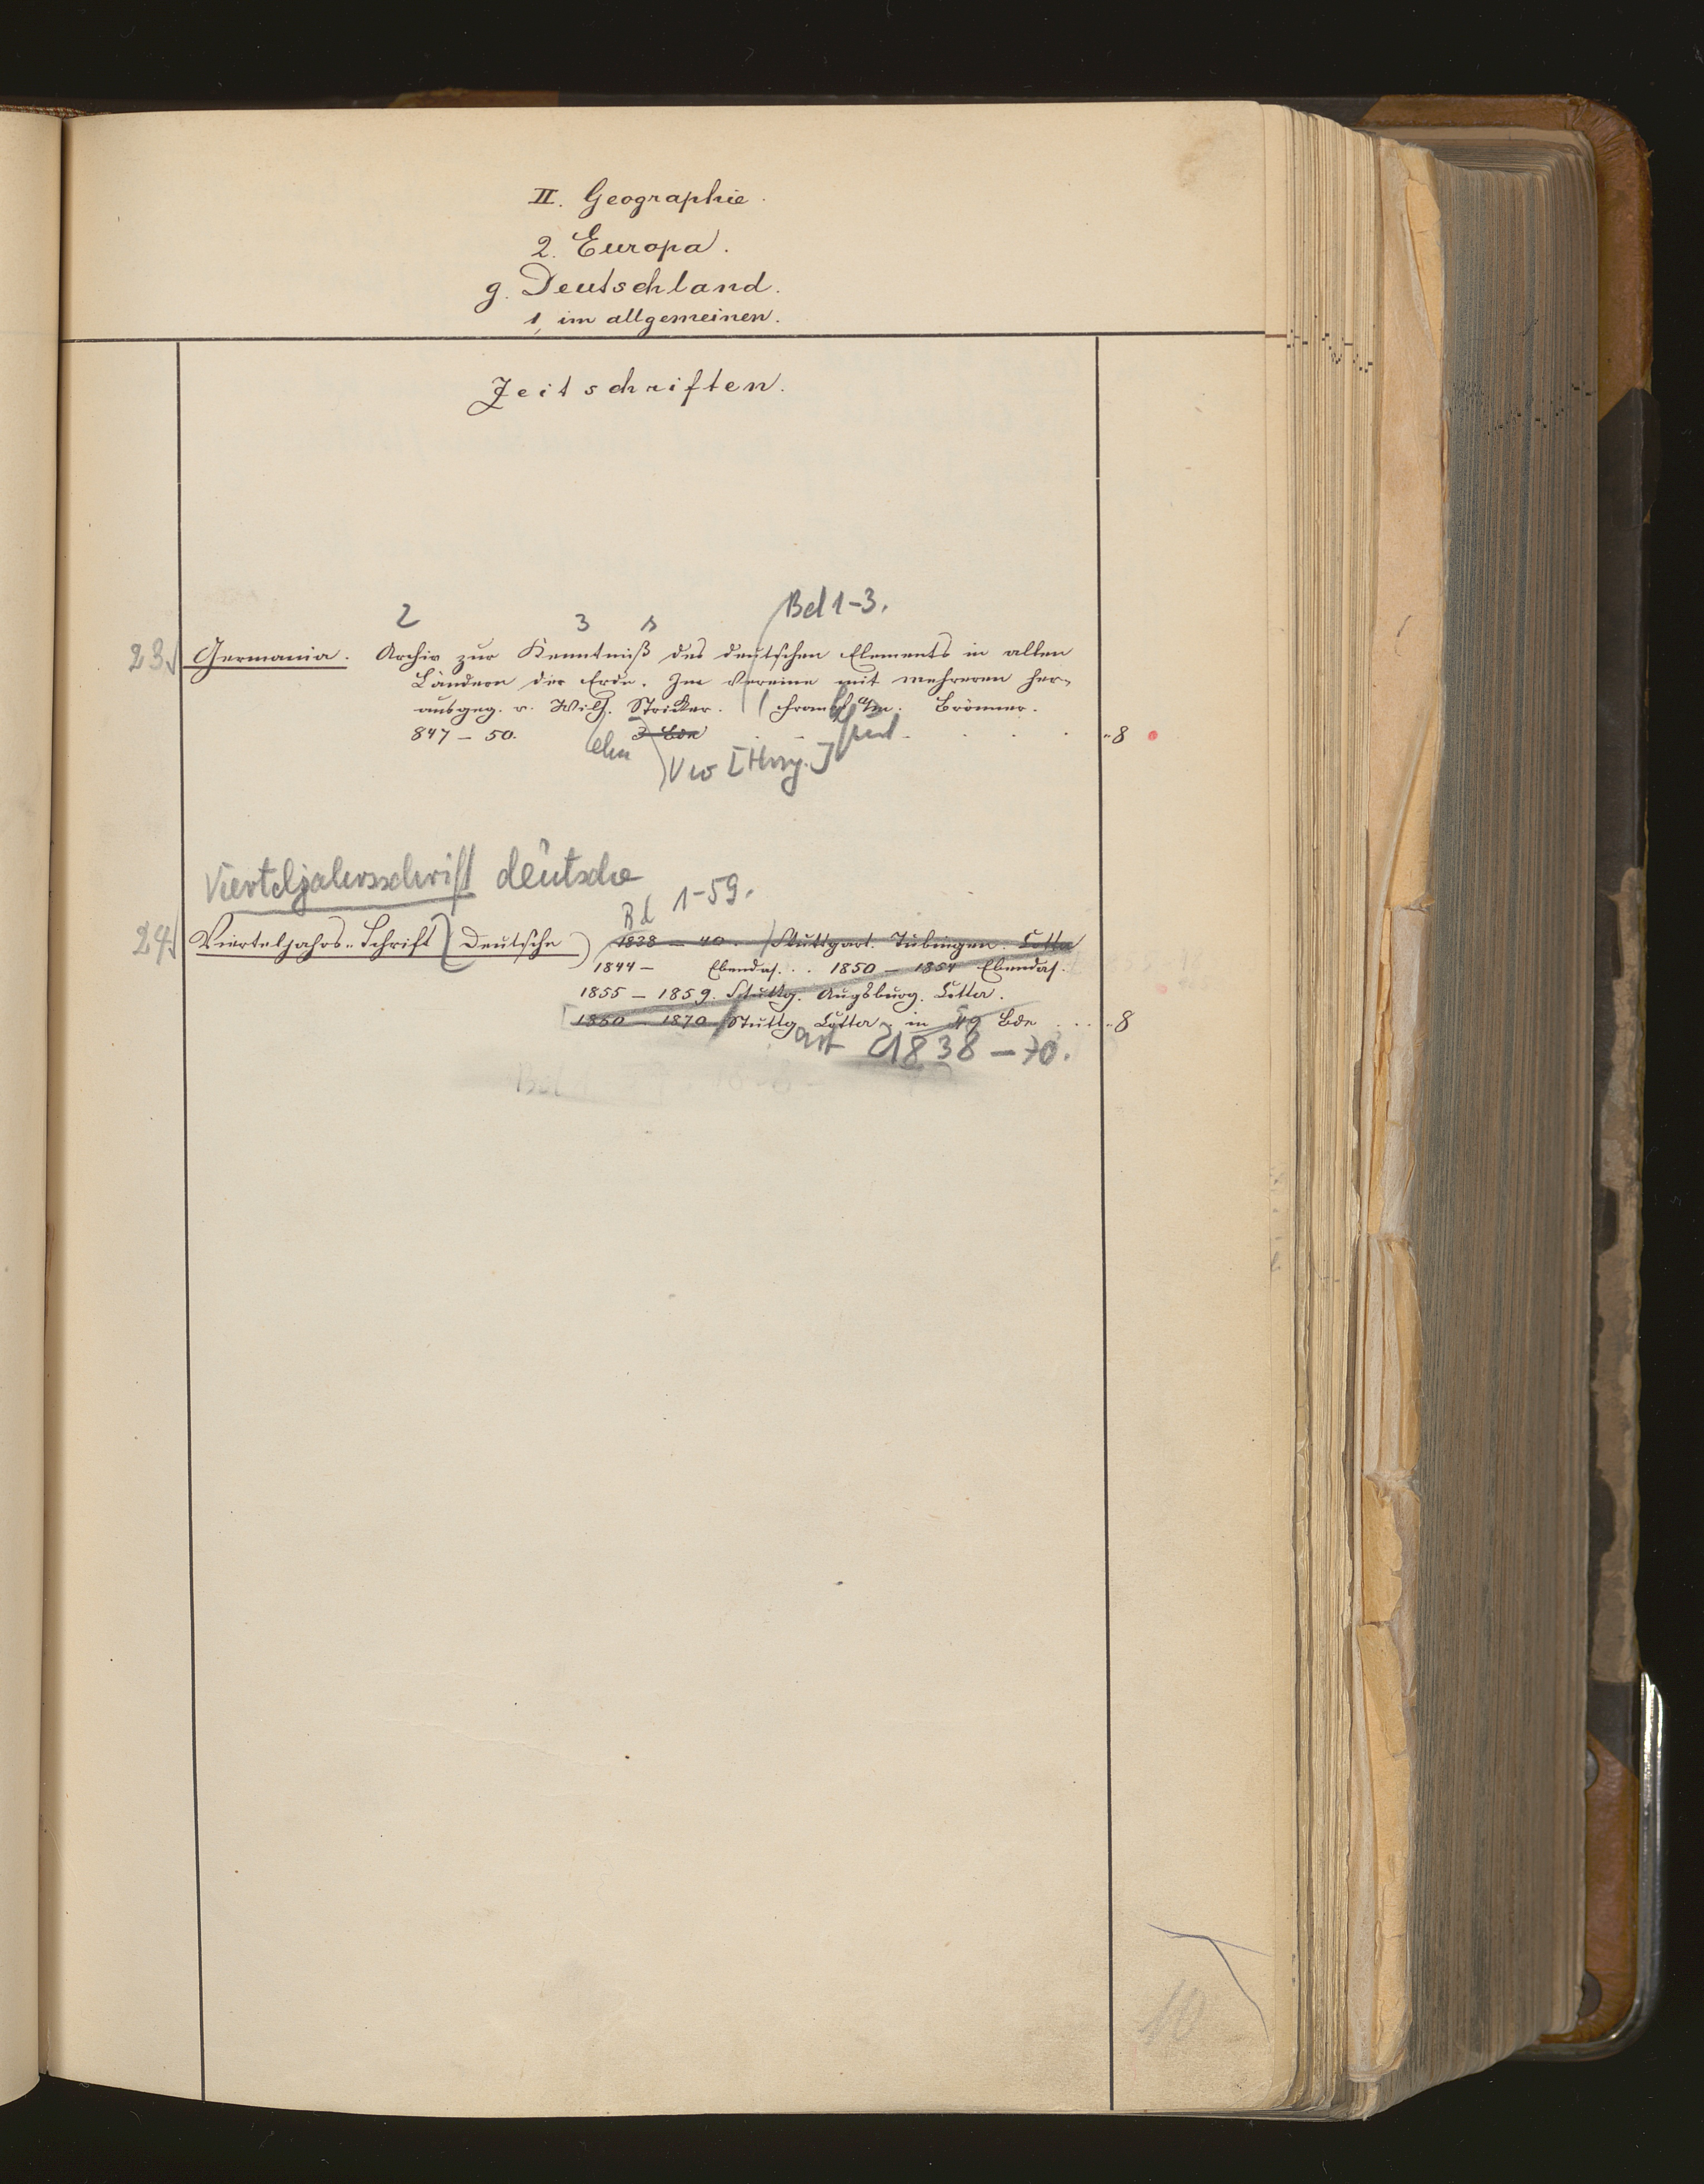 II. Geographie.
2. Europa.
g. Deutschland.
1, im allgemeinen.
Zeitschriften.
2 3 1 Bd 1-3.
23 Germania. Archiv zur Kenntniß des deutschen Elements in allen
Ländern der Erde. Im Vereine mit mehreren her-
ausgeg. v. Wilh. Stricker. Frankf a/m. Brönner.
847 – 50. 3 Bde 8
Viw [Hrsg.]
Vierteljahrsschrift deutsche
Bd 1-59.
24 Vierteljahrs-Schrift (Deutsche) 1838 – 40. Stuttgart. Tübingen. Cotta
1844 – Ebendas. . 1850 – 1854 Ebendas.
1855 – 1859. Stuttg. Augsburg. Cotta.
1860 – 1870 Stuttg Cotta in 49 Bde . . . 8
art 1838 – 70.
10